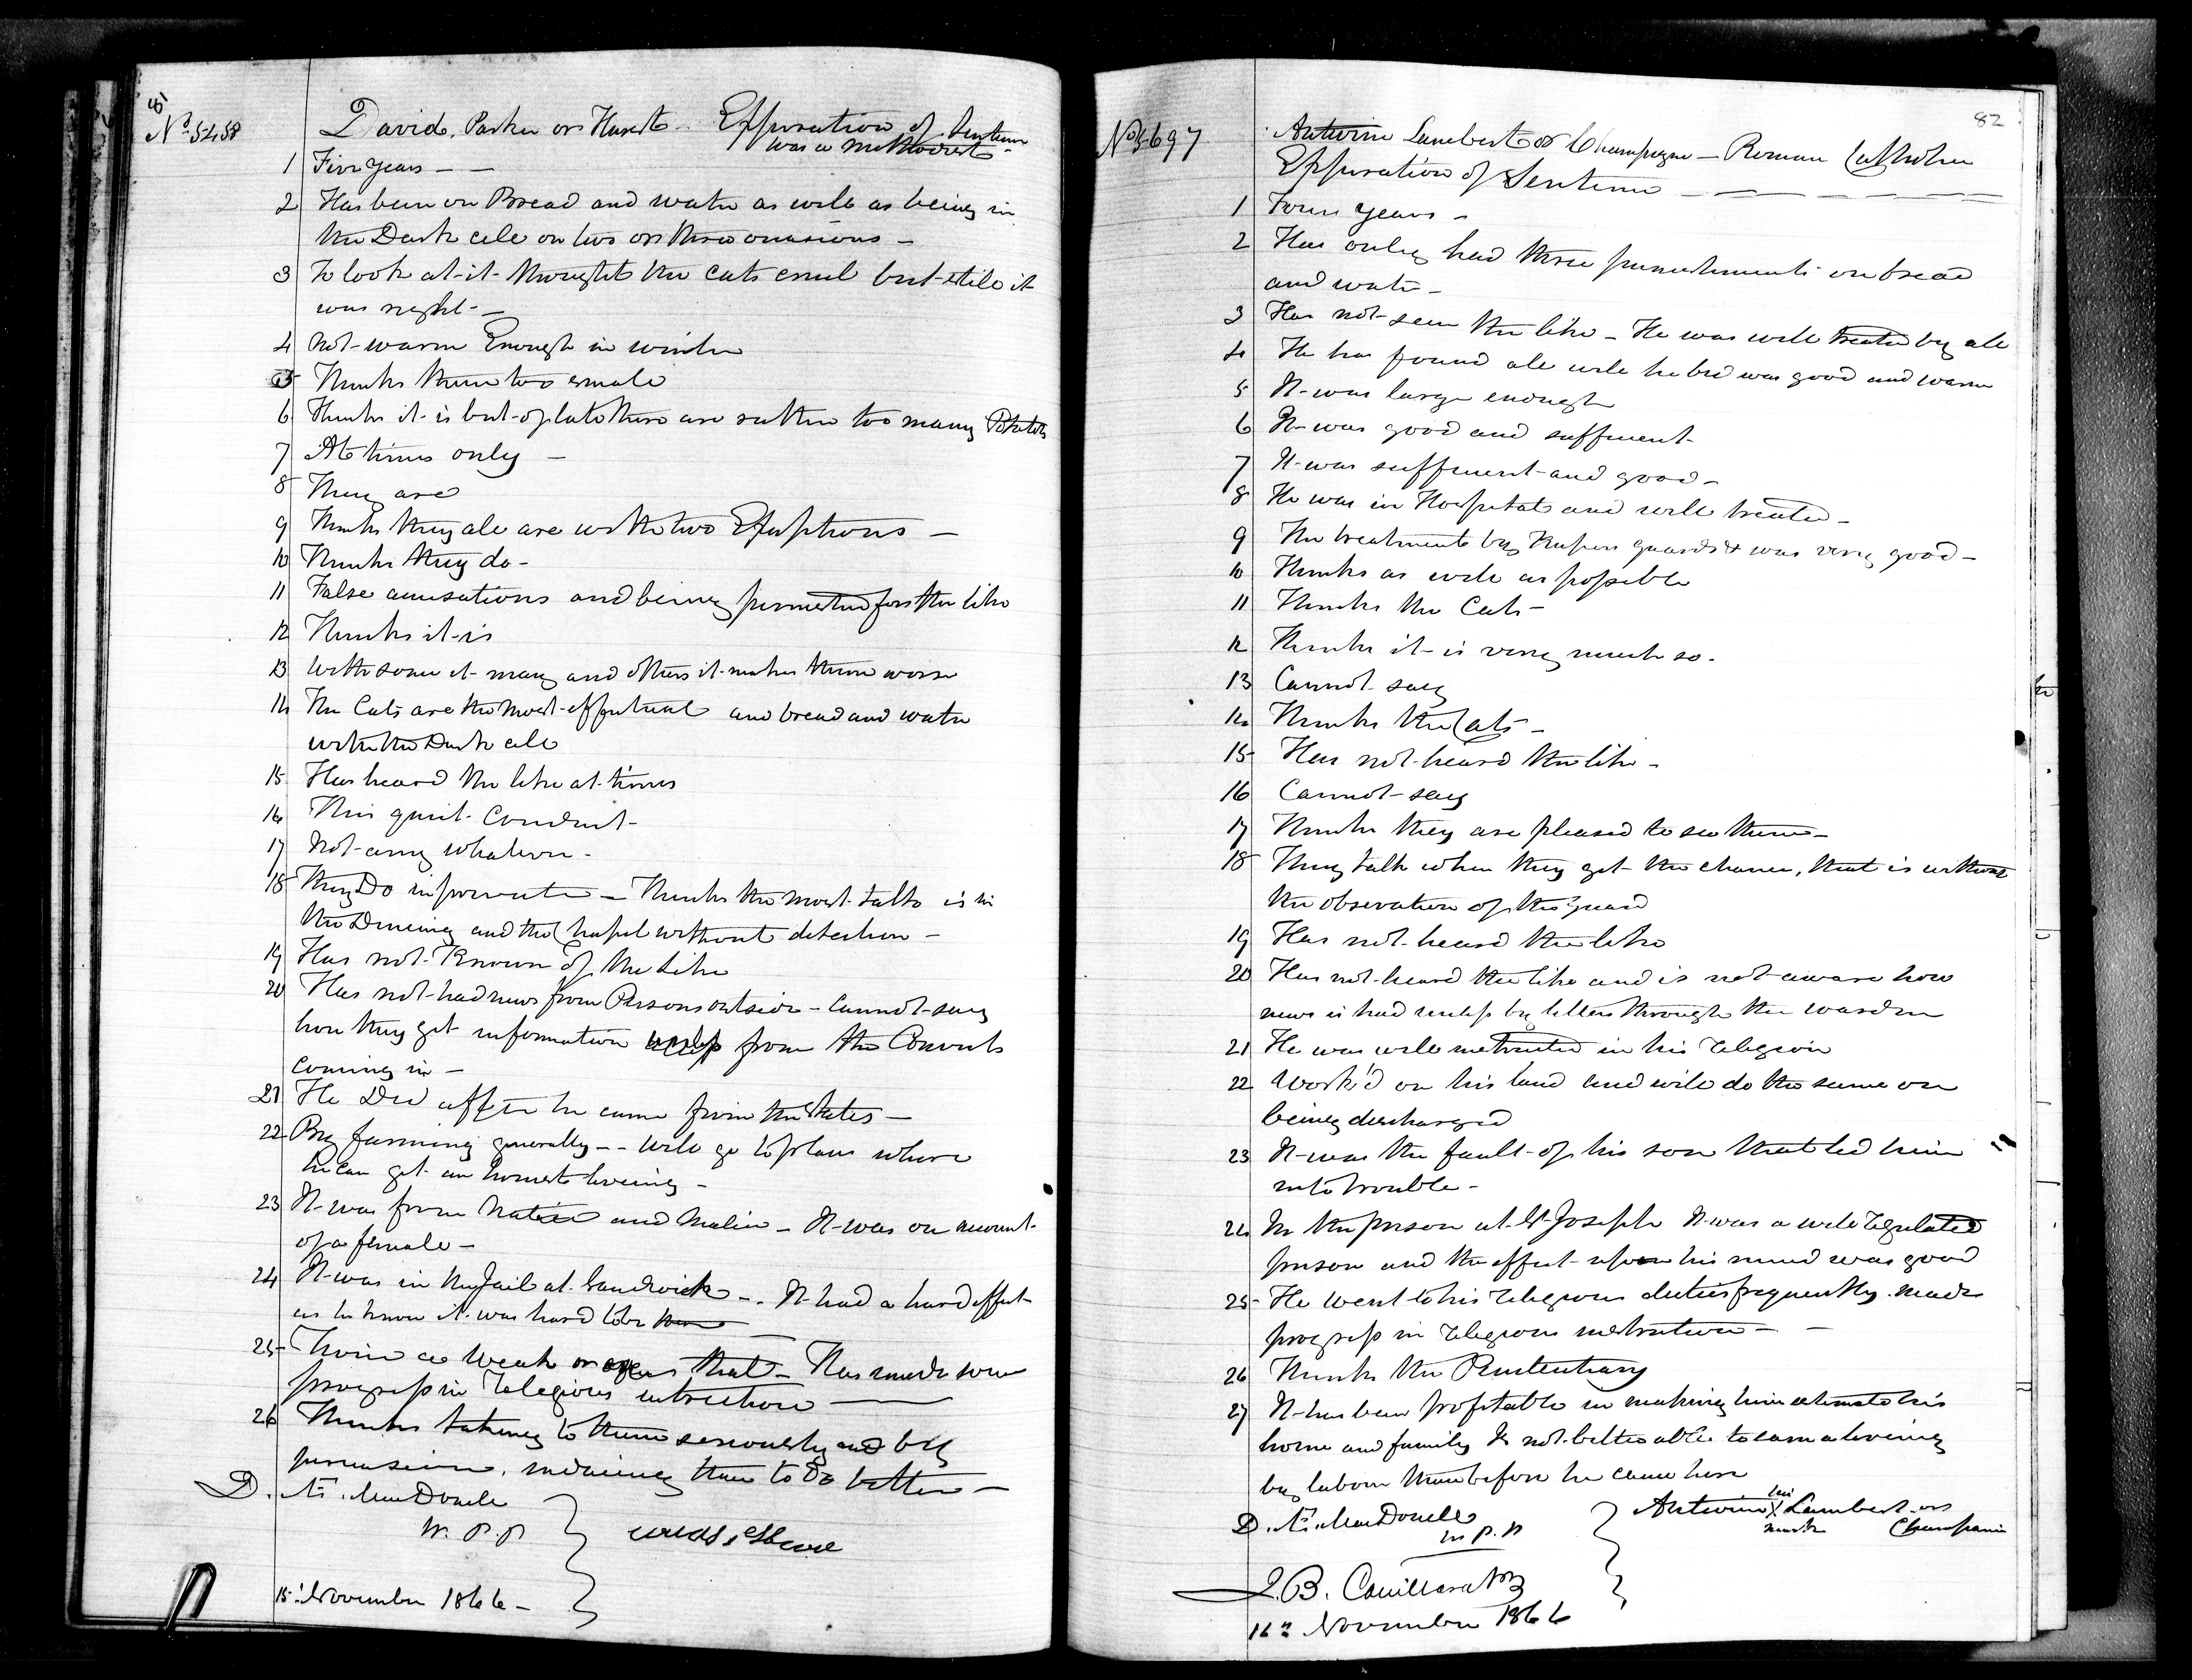 81
No 5458 David Parker or Hurst - Expiration of Sentence
was a Methodist -
1 Five years - -
2 Has been on Bread and water as well as being in
the Dark cell on two or three occasions -
3 To look at it thought the cats cruel but still it
was right -
4 Not warm Enough in winter
5 Thinks them too small
6 Thinks it is but of late there are rather too many Potatoes
7 At times only -
8 They are
9 Thinks they all are with two Exceptions -
10 Thinks they do -
11 False accusations and being punished for the like
12 Thinks it is
13 With some it may and others it makes them worse
14 The Cats are the most effectual and bread and water
with the Dark cell
15 Has heard the like at times
16 This quiet Conduct -
17 Not any whatever -
18 They Do in private - Thinks the most talk is in
the Dineing and the Chapel without detection -
19 Has not Known of the like
20 Has not had news from Persons outside - Cannot say
how they get information unless from the Convicts
coming in -
21 He Did after he came from the States -
22 By farming generally - - will go to place where
he can get an honest liveing -
23 It was from and Malice - It was on account
of a female -
24 It was in the Jail at Sandwich - . It had a hard effect
as he knew it was hard to be
25 Twice a Week or that - Has made some
progress in Religious
26 Thinks talking to them seriously and by
persuasion, induceing them to Do better -
D. Æ. MacDonell
W. P. P.
15th November 1866 -
82
No 5697 Antwine Lambert or Champagne - Roman Catholic
Expiration of Sentence
1 Four years -
2 Has only had three punishments on bread
and water -
3 Has not seen the like - He was well treated by all
4 He has found all well he bed was good and warm
5 It was large enough
6 It was good and sufficient
7 It was sufficient and good -
8 He was in Hospital and well treated -
9 The treatment by Keepers guards & was very good -
10 Thinks as well as possible
11 Thinks the Cats -
12 Thinks it is very much so -
13 Cannot say
14 Thinks the Cats -
15 Has not heard the like -
16 Cannot say
17 Thinks they are pleased to see them -
18 They talk when they get the chance, that is without
the observation of the guard
19 Has not heard the like
20 Has not heard the like and is not aware how
news is had unless by letters through the warden
21 He was well instructed in his Religion
22 Work'd on his land and will do the same on
being discharged
23 It was the fault of his son that led him
into trouble -
24 In the prison at St Joseph It was a well Regulated
prison and the effect upon his mind was good
25 He went to his Religious duties frequently. made
progress in Religious instruction -
26 Thinks the Penitentiary
27 It has been profitable in making him estimate his
home and family Is not better able to earn a liveing
by labour than before he came here
D. Æ. MacDonell
W. P. P.
Antwine his X mark Lambert or
Champaine
J. B. Couillard
16th November 1866